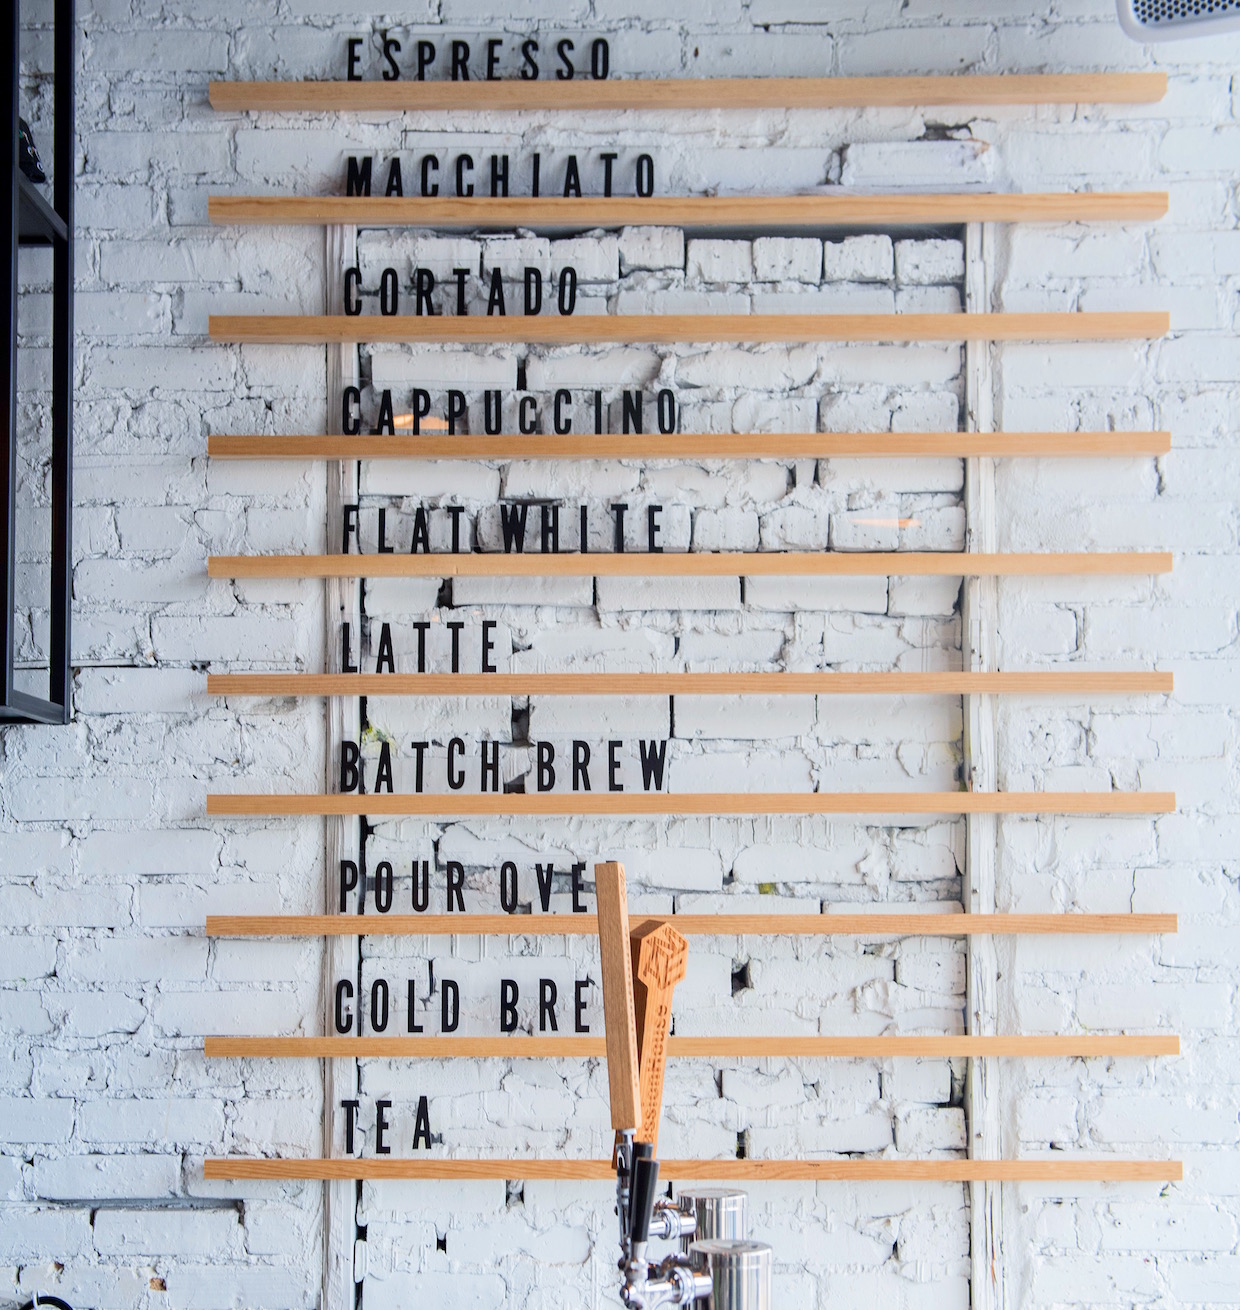 ESPRESSO
MACCHIATO
CORTADO
CAPPUCCINO
FLAT WHITE
LATTE
BATCH BREW
POUR OVE
COLD BRE
TEA